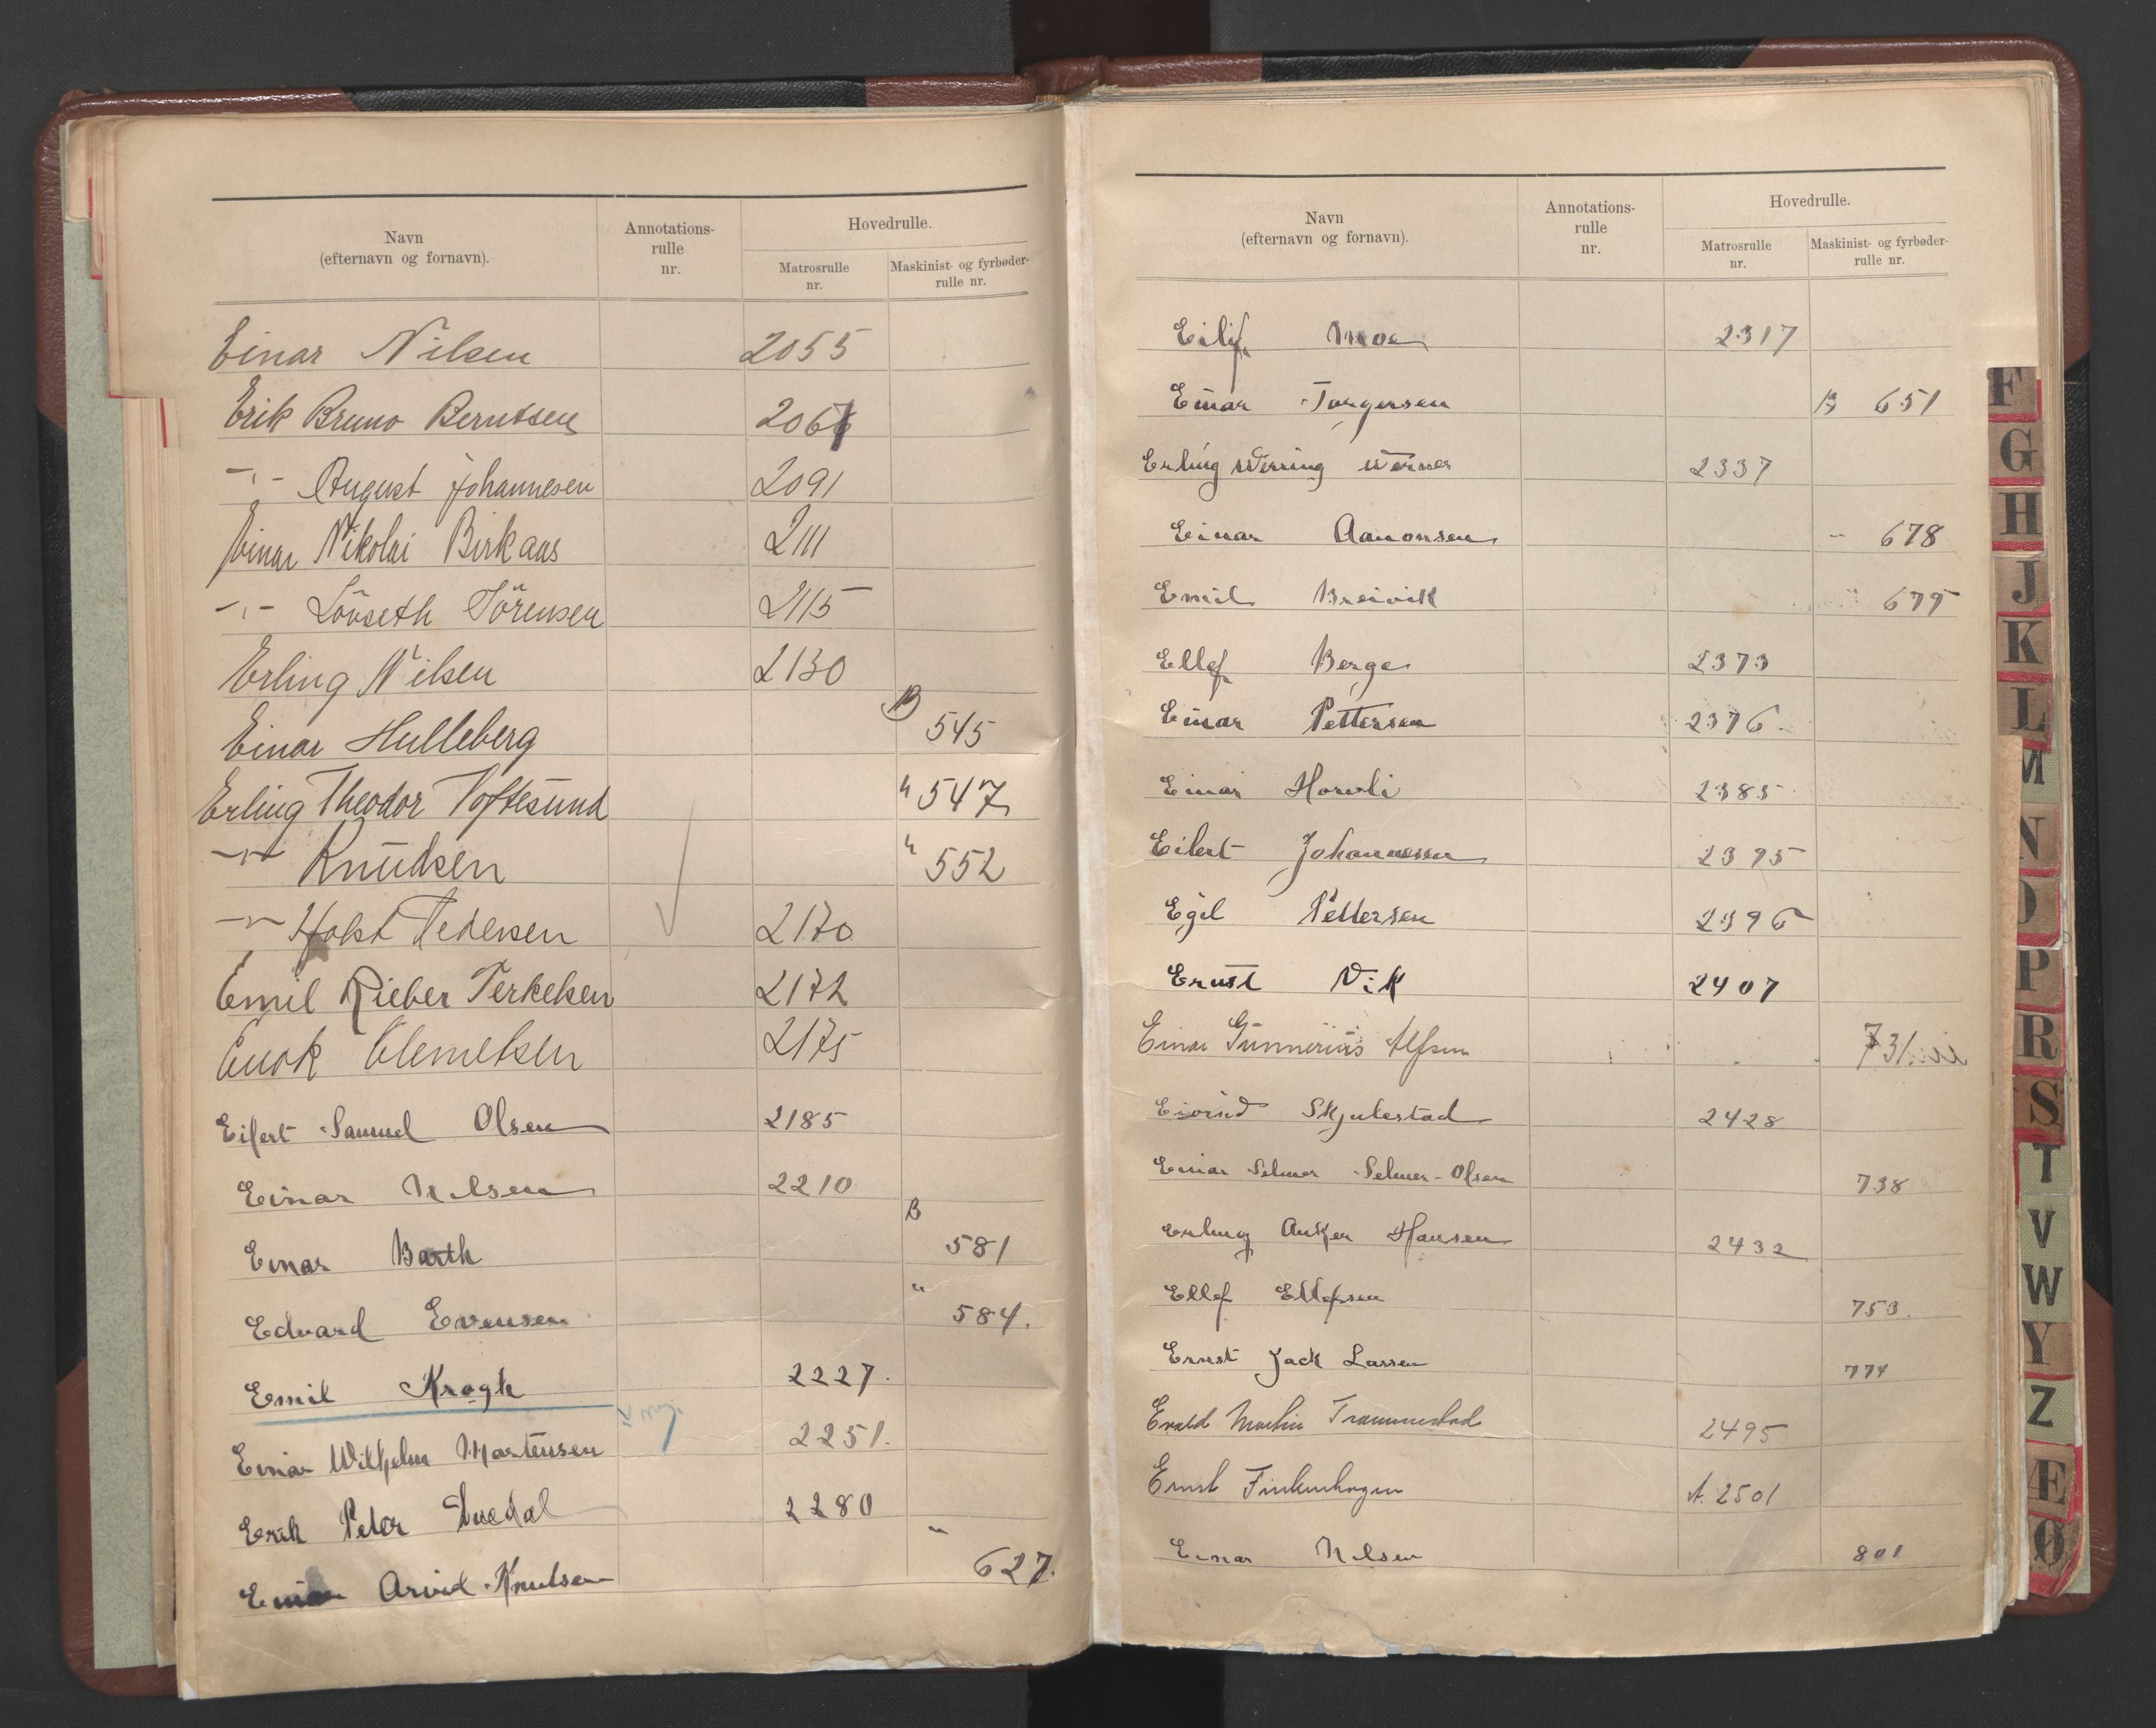 Navn
(efternavn og fornavn).
Annotations-
rulle
nr.
Hovedrulle.
Matrosrulle
nr.
Maskinist- og fyrbøder-
rulle nr.
Einar Nilsen 2055
Erik Bruno Berntsen 2067
-"- August Johannesen 2091
Einar Nikolai Birkaas 2111
-"- Lövseth Sörensen 2115
Erling Nilsen 2130
Einar Hulleberg B 545
Erling Theodor Toftesund " 547
-"- Knudsen " 552
-"- Holst Pedersen 2170
Emil Rieber Terkelsen 2172
Enok Clemetsen 2175
Eilert Samuel Olsen 2185
Einar Nilsen 2210
Einar Barth B 581
Edvard Evensen " 584.
Emil Krogh 2227.
Einar Wilhelm Mortensen 2251.
Erik Peter 2280
Einar Arvid Knutsen " 627.
Navn
(efternavn og fornavn).
Annotations-
rulle
nr.
Hovedrulle.
Matrosrulle
nr.
Maskinist- og fyrbøder-
rulle nr.
Eilif Moe 2317
Einar Torgersen B 651
Erling Werring Werner 2337
Einar Aamonsen - 678
Emil Breivik " 679
Ellef Berge 2373
Einar Pettersen 2376.
Einar Horvli 2385
Eilert Johannessen 2395
Egil Pettersen 2396
Ernst Vik 2407
Einar Gunnerius Alfsen 731
Eivind Skjulestad 2428
Einar Selmer Selmer-Olsen 738
Erling Anker Hansen 2432
Ellef Ellefsen 753.
Ernst Jack Larsen 774
Evald Martin Trammestad 2495
Ernst Finkenhagen A. 2501
Einar Nilsen 801
F
G
H
J
K
L
M
N
O
P
R
S
T
V
W
Y
Z
Æ
Ø